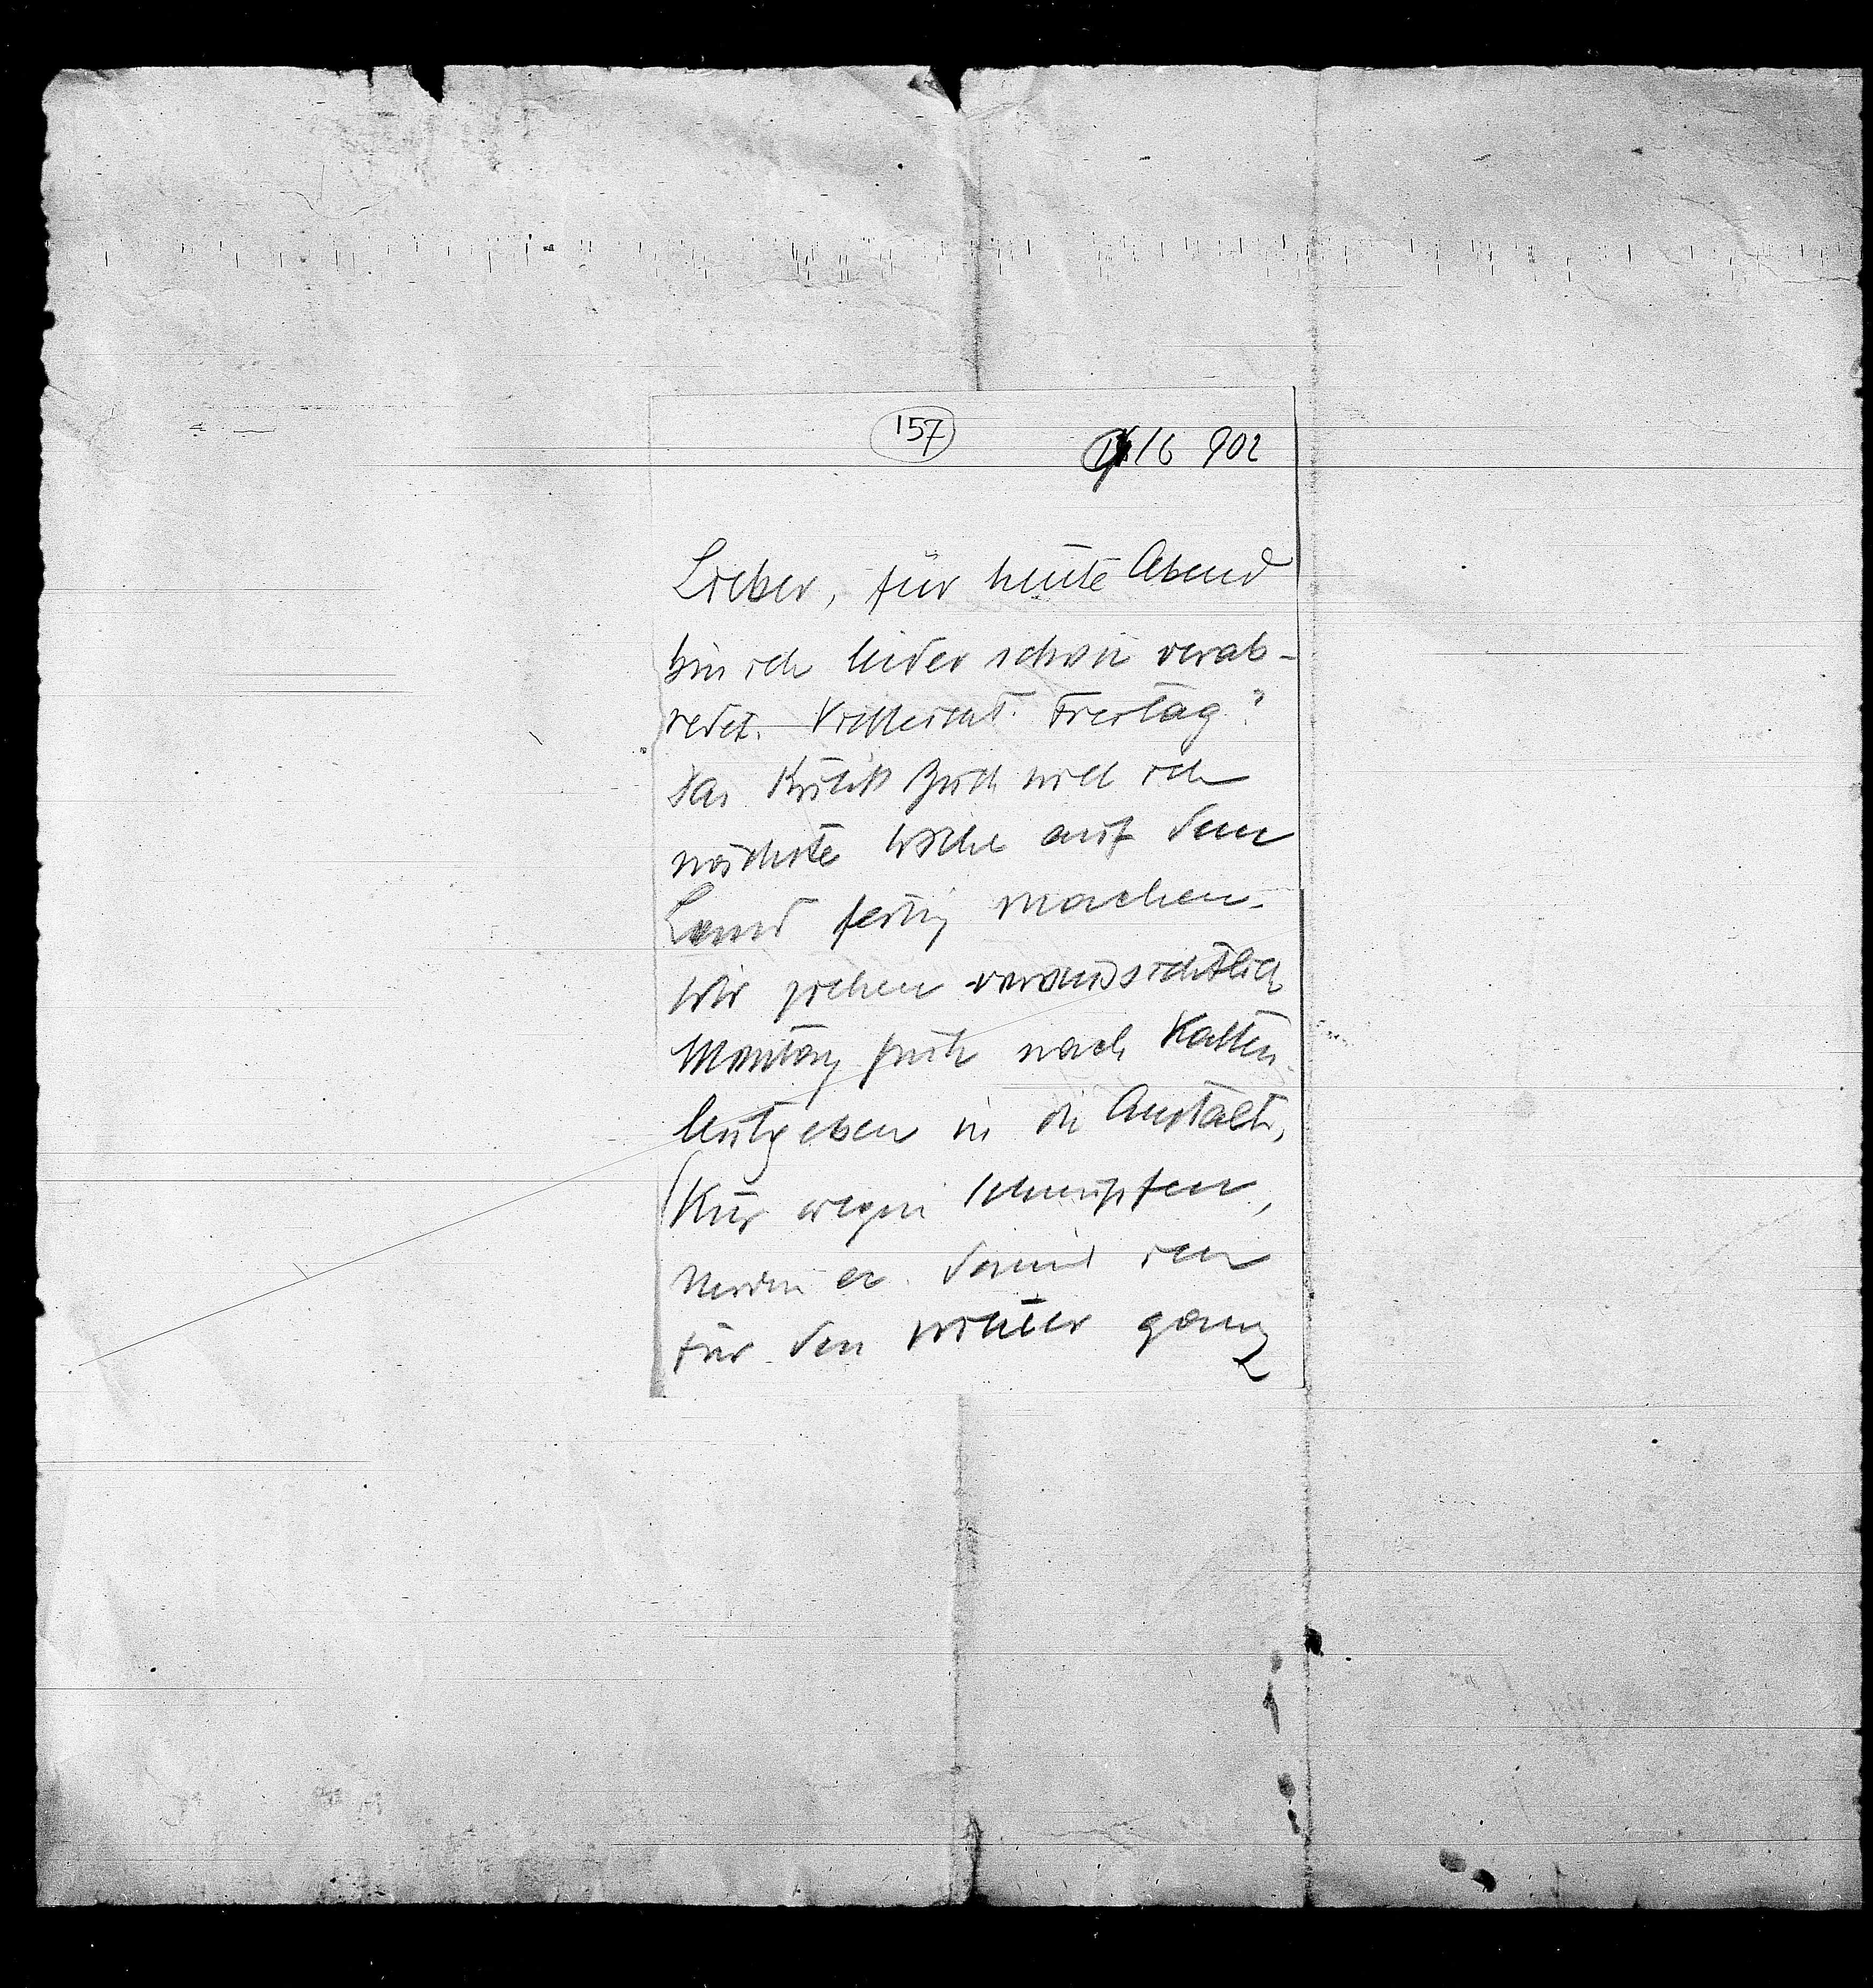 157
/6 902
Lieber, für heute Abend
bin ich leider schon verab-
redet. Vielleicht Freitag?
Das Kritik Buch will ich
nächste Woche auf dem
Land fertig machen.
Wir ziehen voraussichtlich
Montag früh nach Kalten-
leutgeben in die Anstalt,
(Kur wegen Schnupfen,
Nerven etc. damit ich
für den Winter ganz